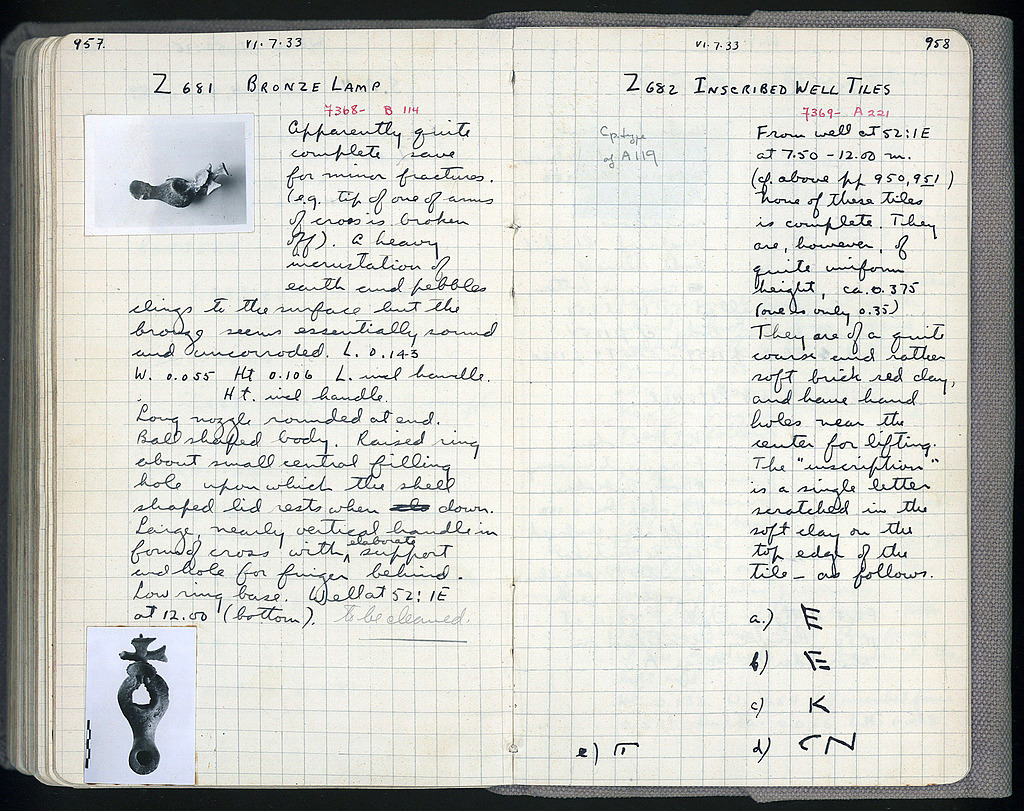 957.
VI.7.33
Z 681 BRONZE LAMP
7368- B 114
Apparently quite
complete save
for minor fractures.
(e.g. tip of one of arms
of cross is broken
off). A heavy
incrustation of
earth and pebbles
clings to the surface but the
bronze seems essentially sound
and uncorroded. L. 0.143
W. 0.055 Ht 0.106 L. incl handle.
Ht. incl handle.
Long nozzle rounded at end.
Ball shaped body. Raised ring
about small central filling
hole upon which the shell
shaped lid rests when down.
Large, nearly vertical handle in
form of cross with elaborate support
and hole for finger behind.
Low ring base. Well at 52:1E
at 12.00 (bottom). to be cleaned.
VI.7.33
958
Z 682 INSCRIBED WELL TILES
7369- A 221
Cp. type
of A119
From well at 52:1E
at 7.50-12.00 m.
(cf. above pp 950,951)
None of these tiles
is complete. They
are, however, of
quite uniform
height, ca. 0.375
(one is only 0.35)
They are of a quite
coarse and rather
soft brick red clay,
and have hand
holes near the
center for lifting.
The "inscription"
is a single letter
scratched in the
soft clay on the
top edge of the
tile – as follows.
a.) E
b) E
c) K
d)
e) π